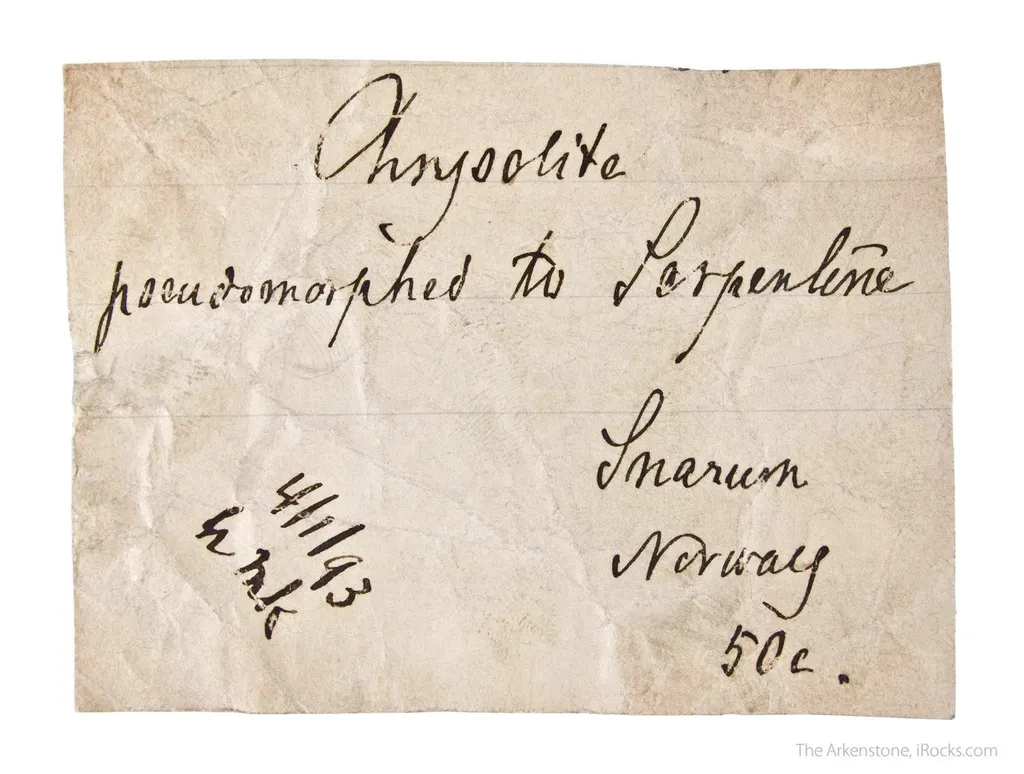 Chrysolite
pseudomorphed to Serpentine
Snarum
Norway
50c.
4/1/93
The Arkenstone, iRocks.com